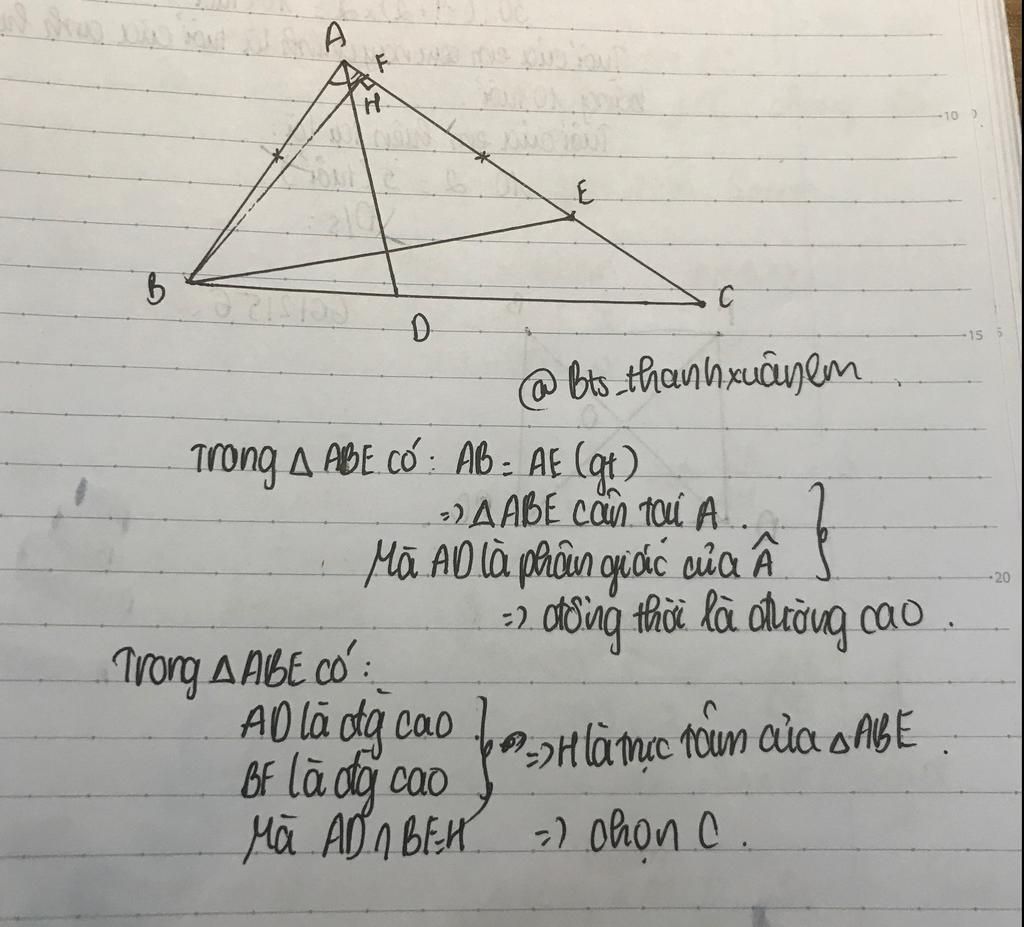 A
F
H
E
B
D
C
@Bts_thanhxuânem
Trong △ ABE có: AB = AE (gt)
=> △ABE cân tại A.
Mà AD là phân giác của Â
=> đồng thời là đường cao.
Trong △ABE có:
AD là đg cao
BF là đg cao
=> H là trực tâm của △ABE.
Mà AD ∩ BF = H => chọn C.
10
15
20